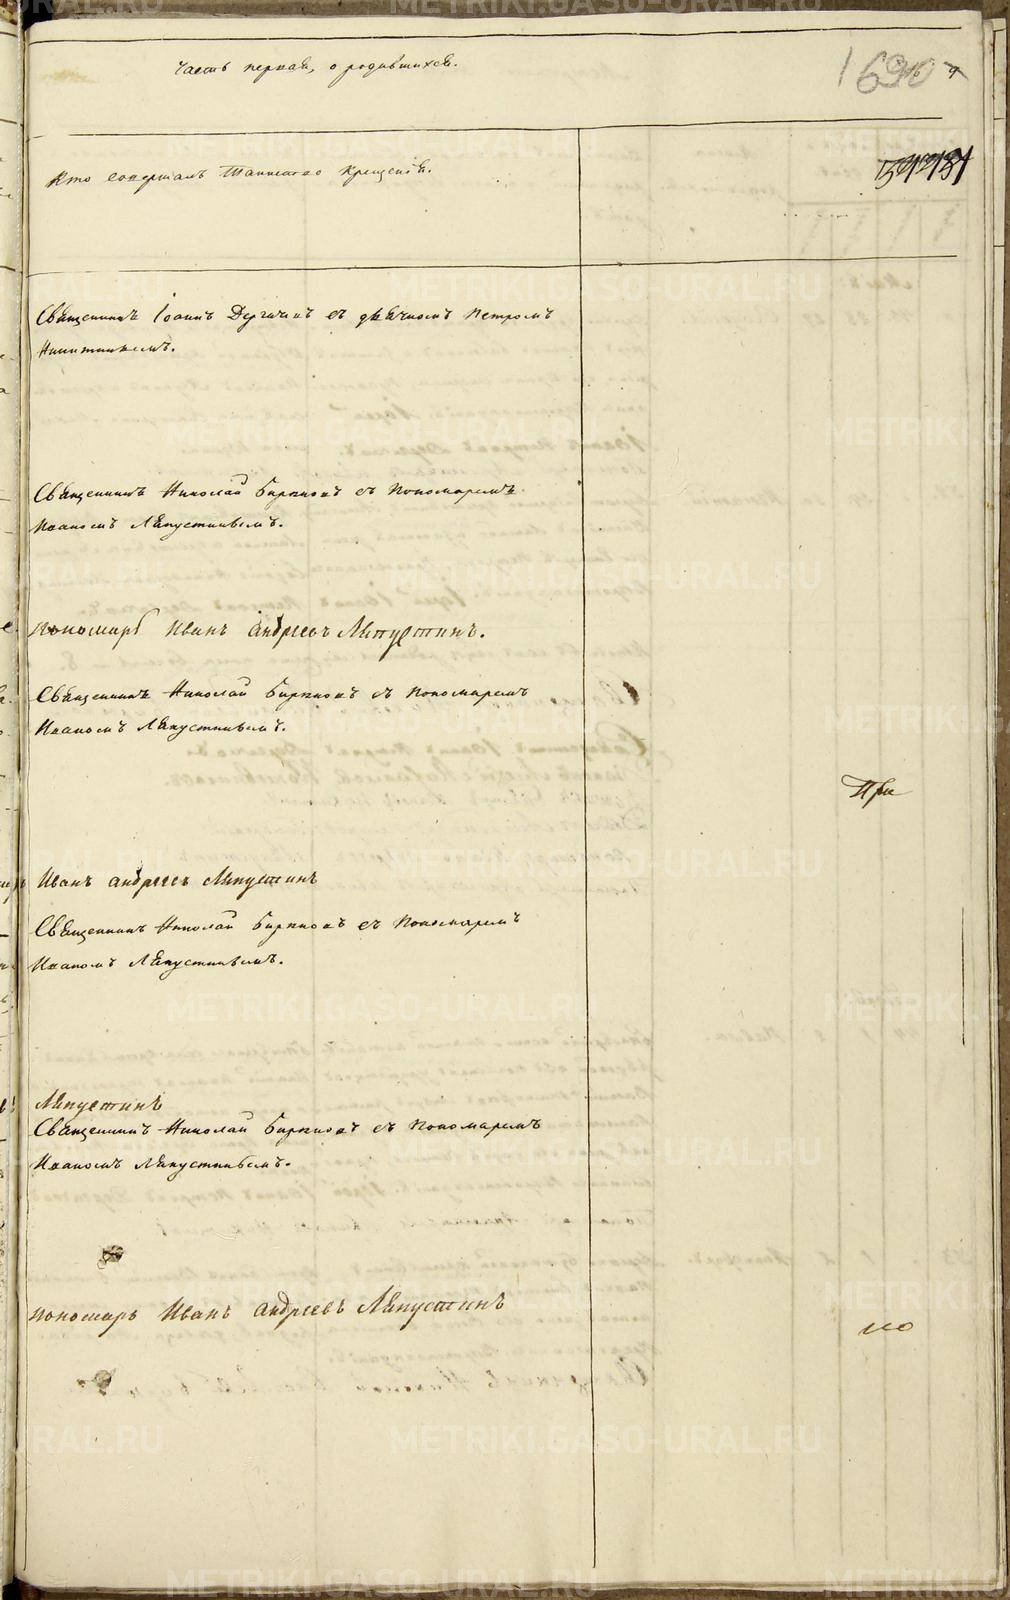 Часть первая, о родившихся.
169
Кто совершалъ Таинство Крещенія.
Священникъ Іоаннъ Дергачевъ съ дьячкомъ Петромъ
Никитинымъ.
Священникъ Николай Бирюковъ съ Пономаремъ
Иваномъ Ляпустинымъ.
Пономарь Иванъ Андреевъ Ляпустинъ.
Священникъ Николай Бирюковъ съ Пономаремъ
Иваномъ Ляпустинымъ.
При
Иванъ Андреевъ Ляпустинъ
Священникъ Николай Бирюковъ съ Пономаремъ
Иваномъ Ляпустинымъ.
Ляпустинъ
Священникъ Николай Бирюковъ съ Пономаремъ
Иваномъ Ляпустинымъ.
Пономарь Иванъ Андреевъ Ляпустинъ
METRIKI.GASO-URAL.RU